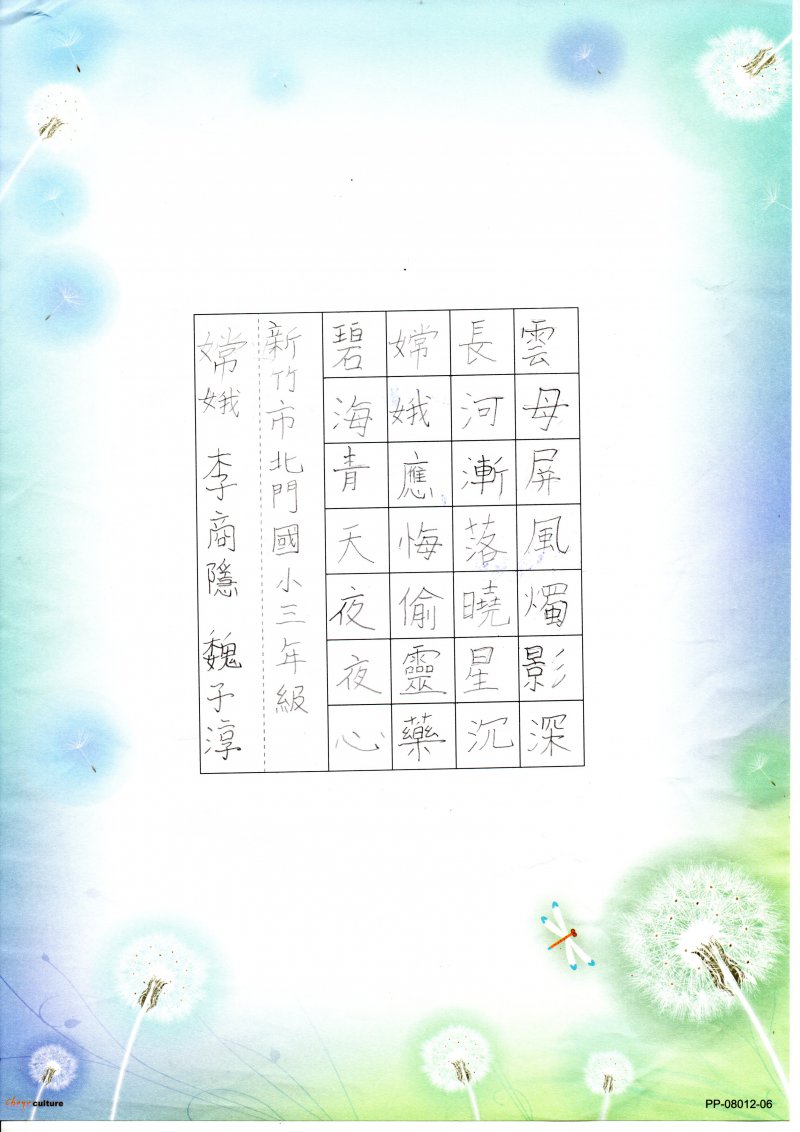 雲母屏風燭影深
長河漸落曉星沉
嫦娥應悔偷靈藥
碧海青天夜夜心
新竹市北門國小三年級
嫦娥 李商隱 魏子淳
Choyo culture
PP-08012-06